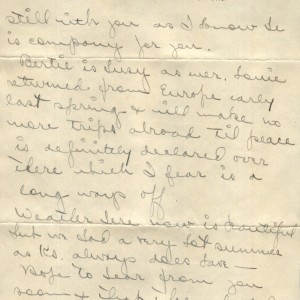 still with you as I know he
is company for you.
Bertie is busy as ever, Louie
returned from Europe early
last spring & will make no
more trips abroad til peace
is definitely declared over
there which I fear is a
long ways off
Weather here now is beautiful
but we had a very hot summer
as Ks. always does have —
Hope to hear from you
soon &